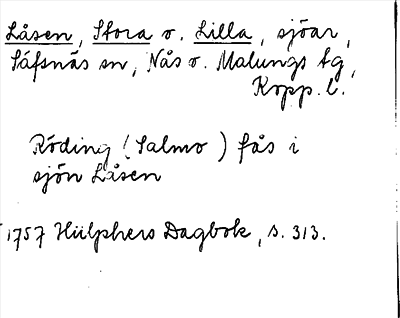 Låsen, Stora o. Lilla, sjöar,
Säfsnäs sn, Nås o. Malungs tg,
Kopp. l.
Röding (Salmo) fås i
sjön Låsen
1757 Hülphers Dagbok, s. 313.